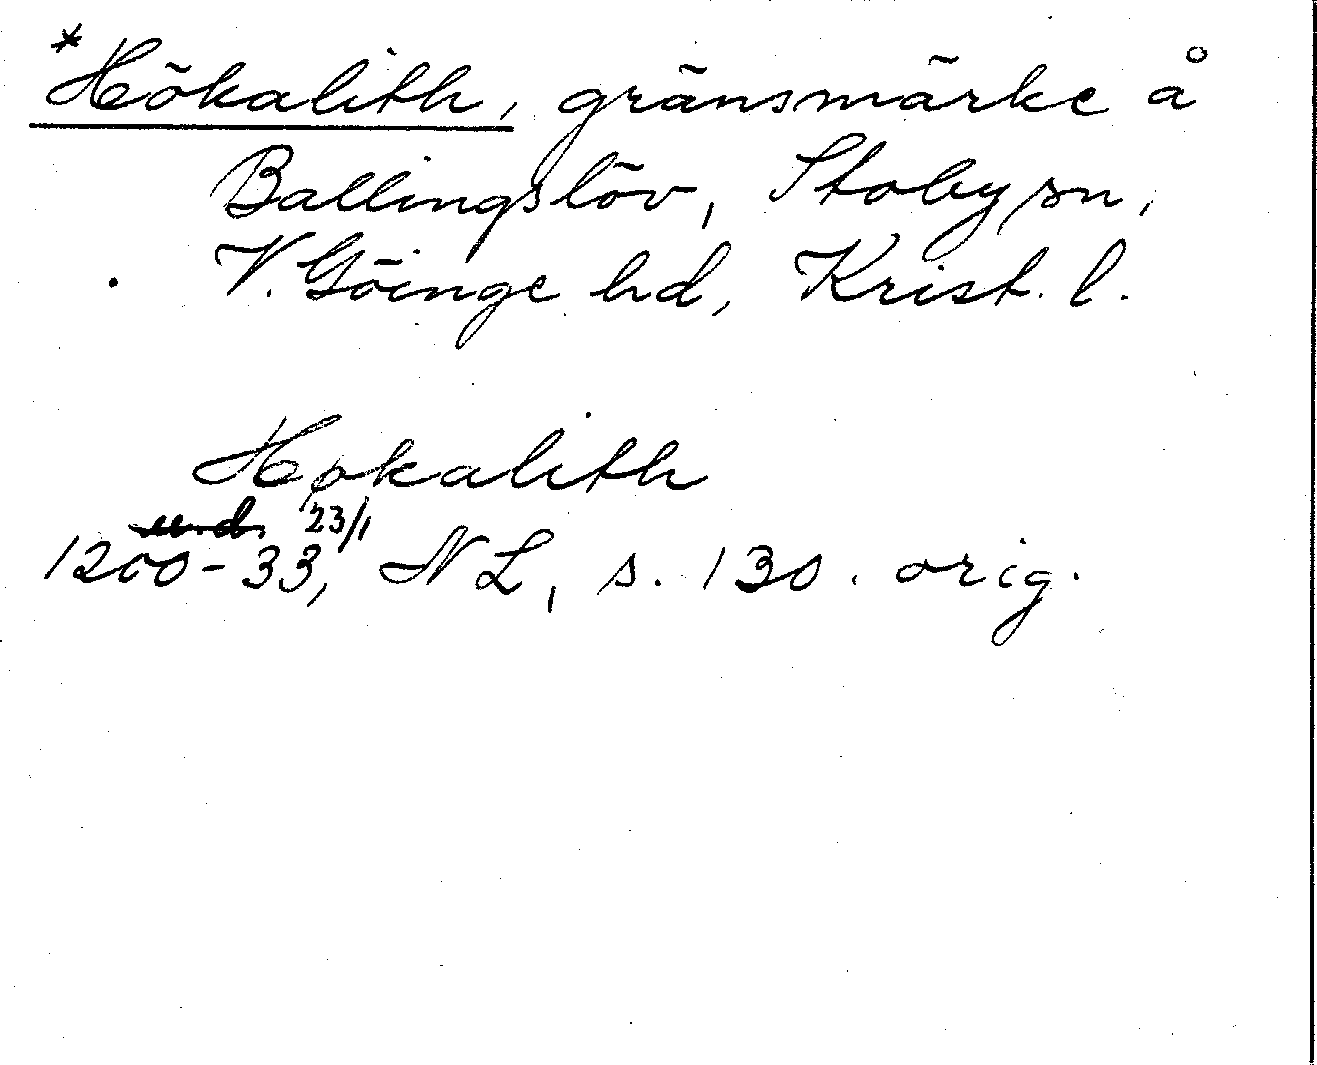 *Hökalith, gränsmärke å
Ballingslöv, Stoby sn,
V. Göinge hd, Krist. l.
Høkalith
23/1
1200-33, NL, s. 130. orig.